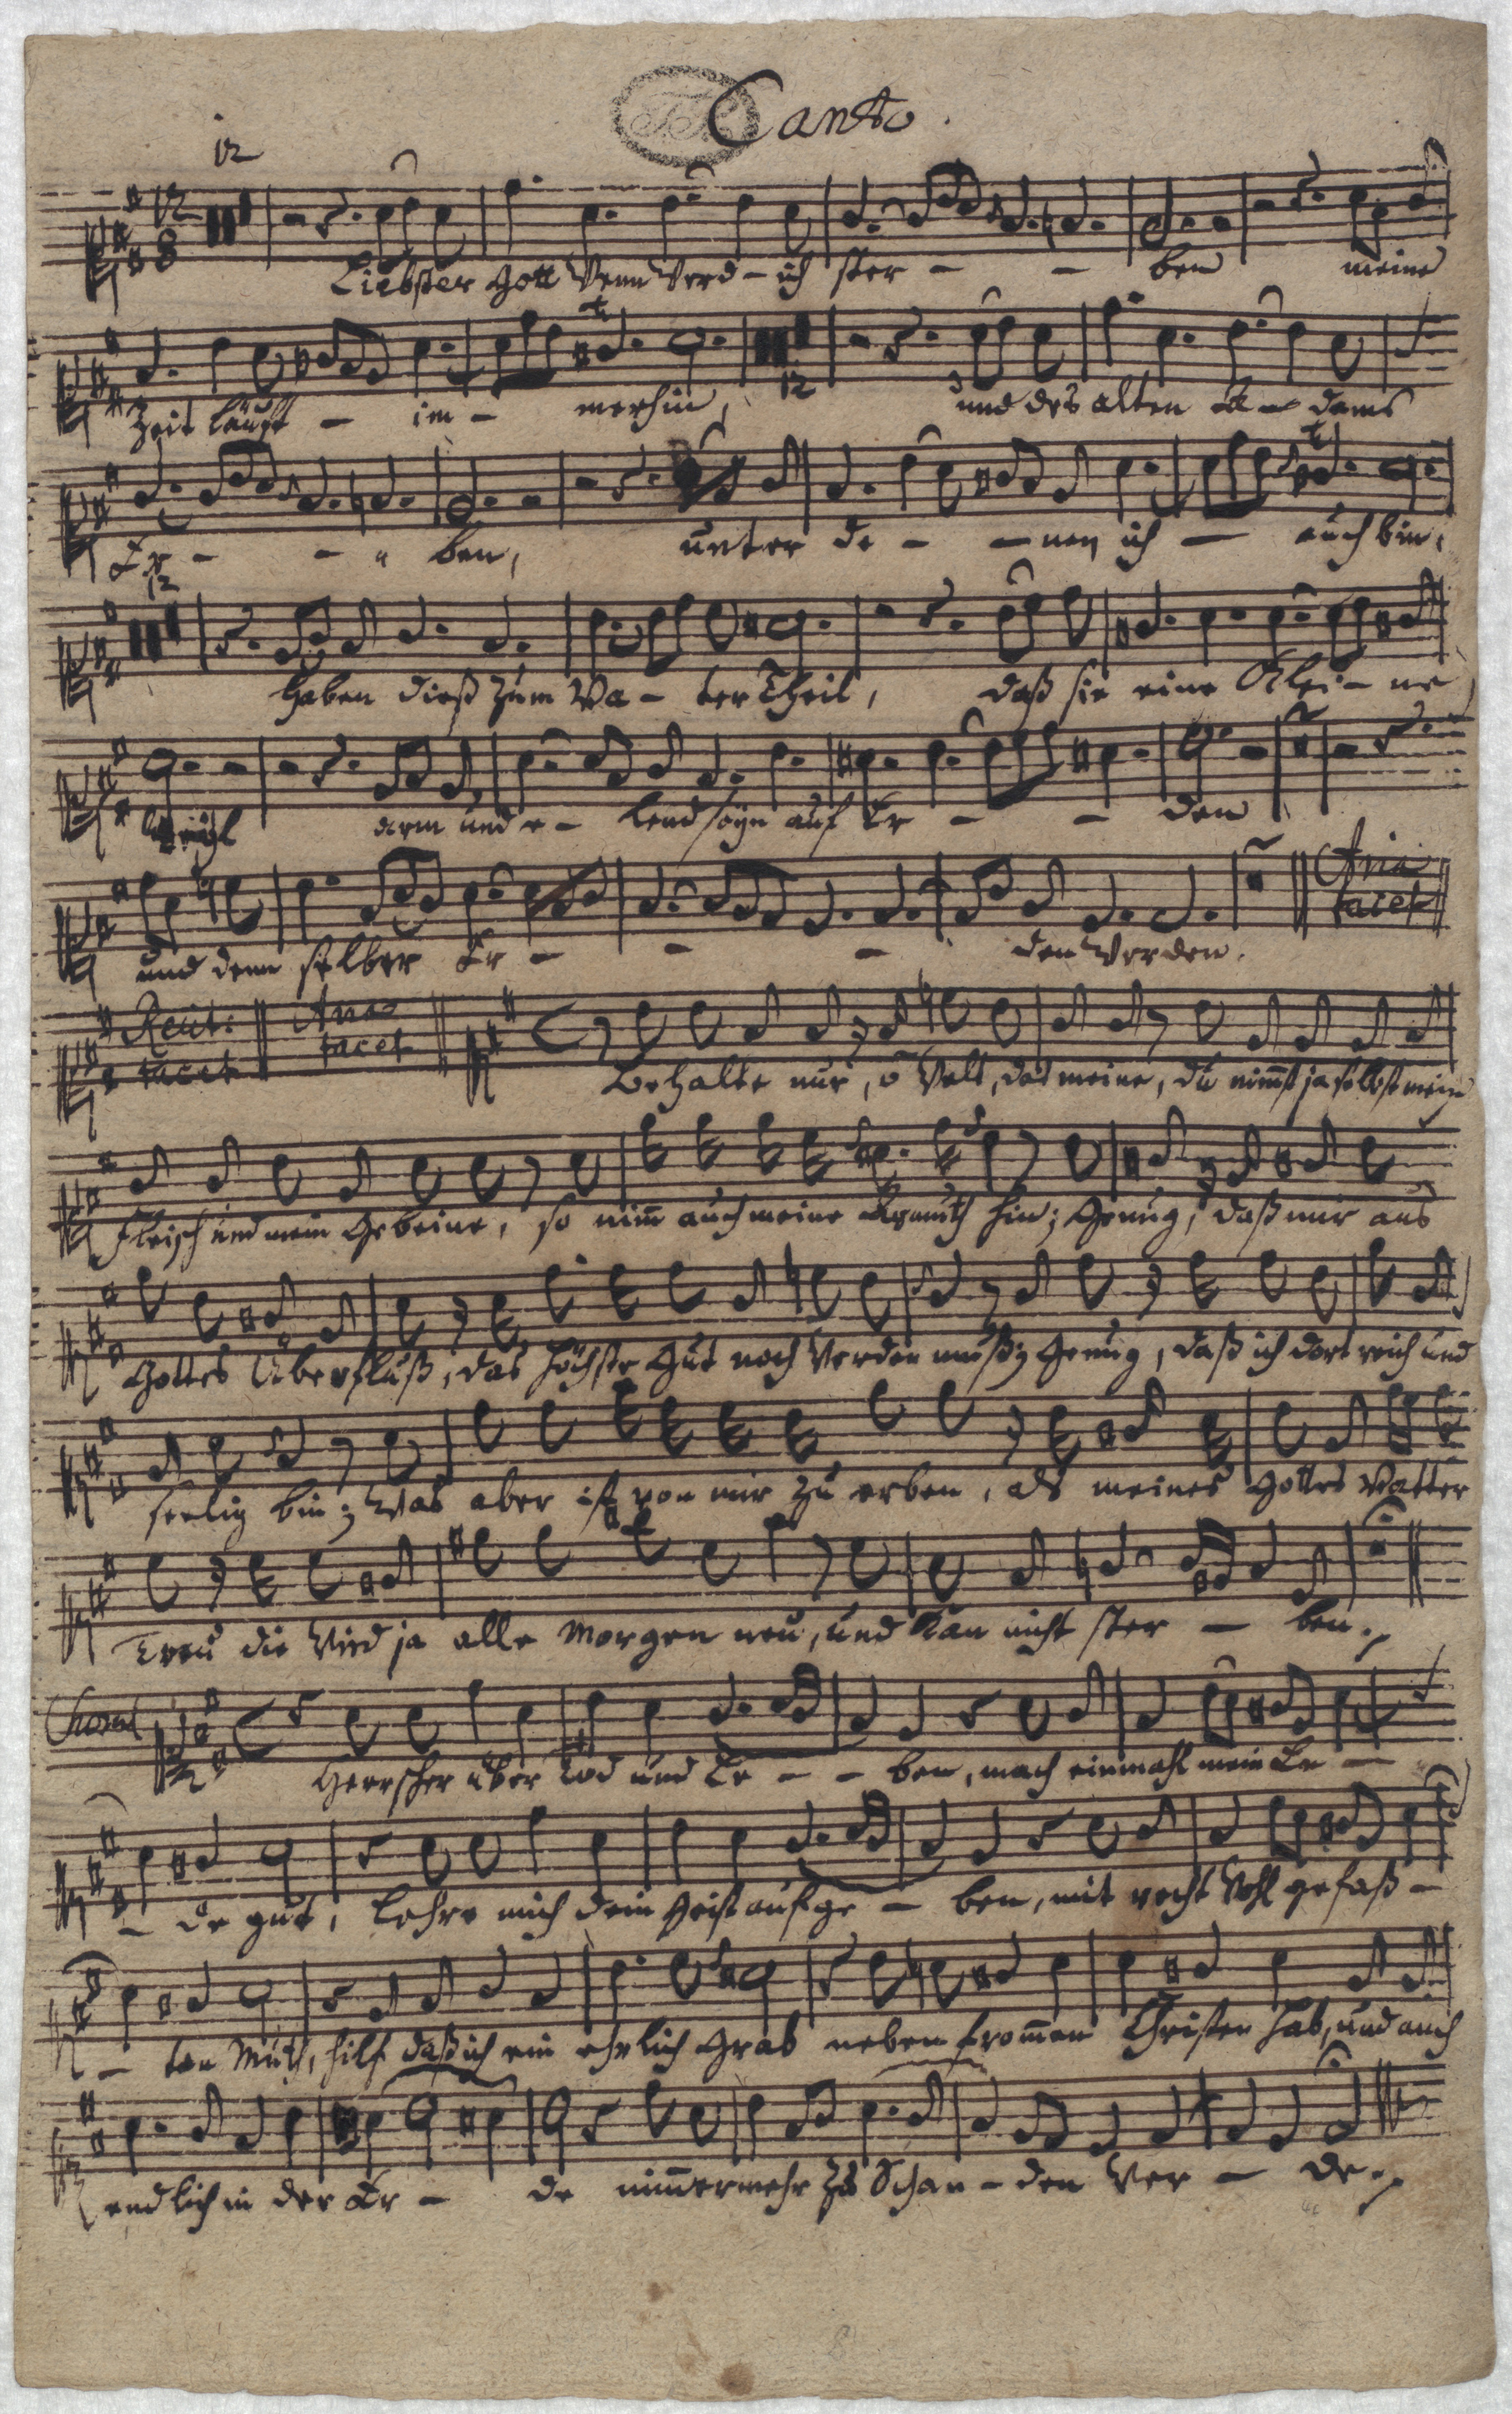 Canto.
12
12
8
Liebster Gott Wenn Werd - ich ster - - ben meine
Zeit läufft - im - merhin, 12 und des alten A - dams
Er - - - ben, unter de - - nen ich - auch bin,
12
haben dieß zum Va - ter Theil, daß sie eine Klei - ne
Weyl arm und e - lend seyn auf Er - - den
und denn selber Er - - - den Werden.
Aria
tacet
Recit:
tacet
Aria
tacet
Behalte nur, o Welt, das meine, du nim̄st ja selbst mein
Fleisch und mein Gebeine, so nim̄ auch meine Armuth hin; Genug, daß mir aus
Gottes Überfluß, das höchste Gut noch Werden muß; Genug, daß ich dort reich und
seelig bin; Was aber ist von mir zu erben, als meines Gottes Vatter
Treu die Wird ja alle Morgen neu, und kan nicht ster - ben.
Choral
Herrscher über Tod und Le - - ben, mach einmahl mein En -
- de gut, lehre mich dein Geist aufge - ben, mit recht Wohl gefaß -
- ten Muth, hilf daß ich ein ehrlich Grab neben from̄en Christen hab, und auch
endlich in der Er - de nim̄ermehr zu Schan - den Wer - de.